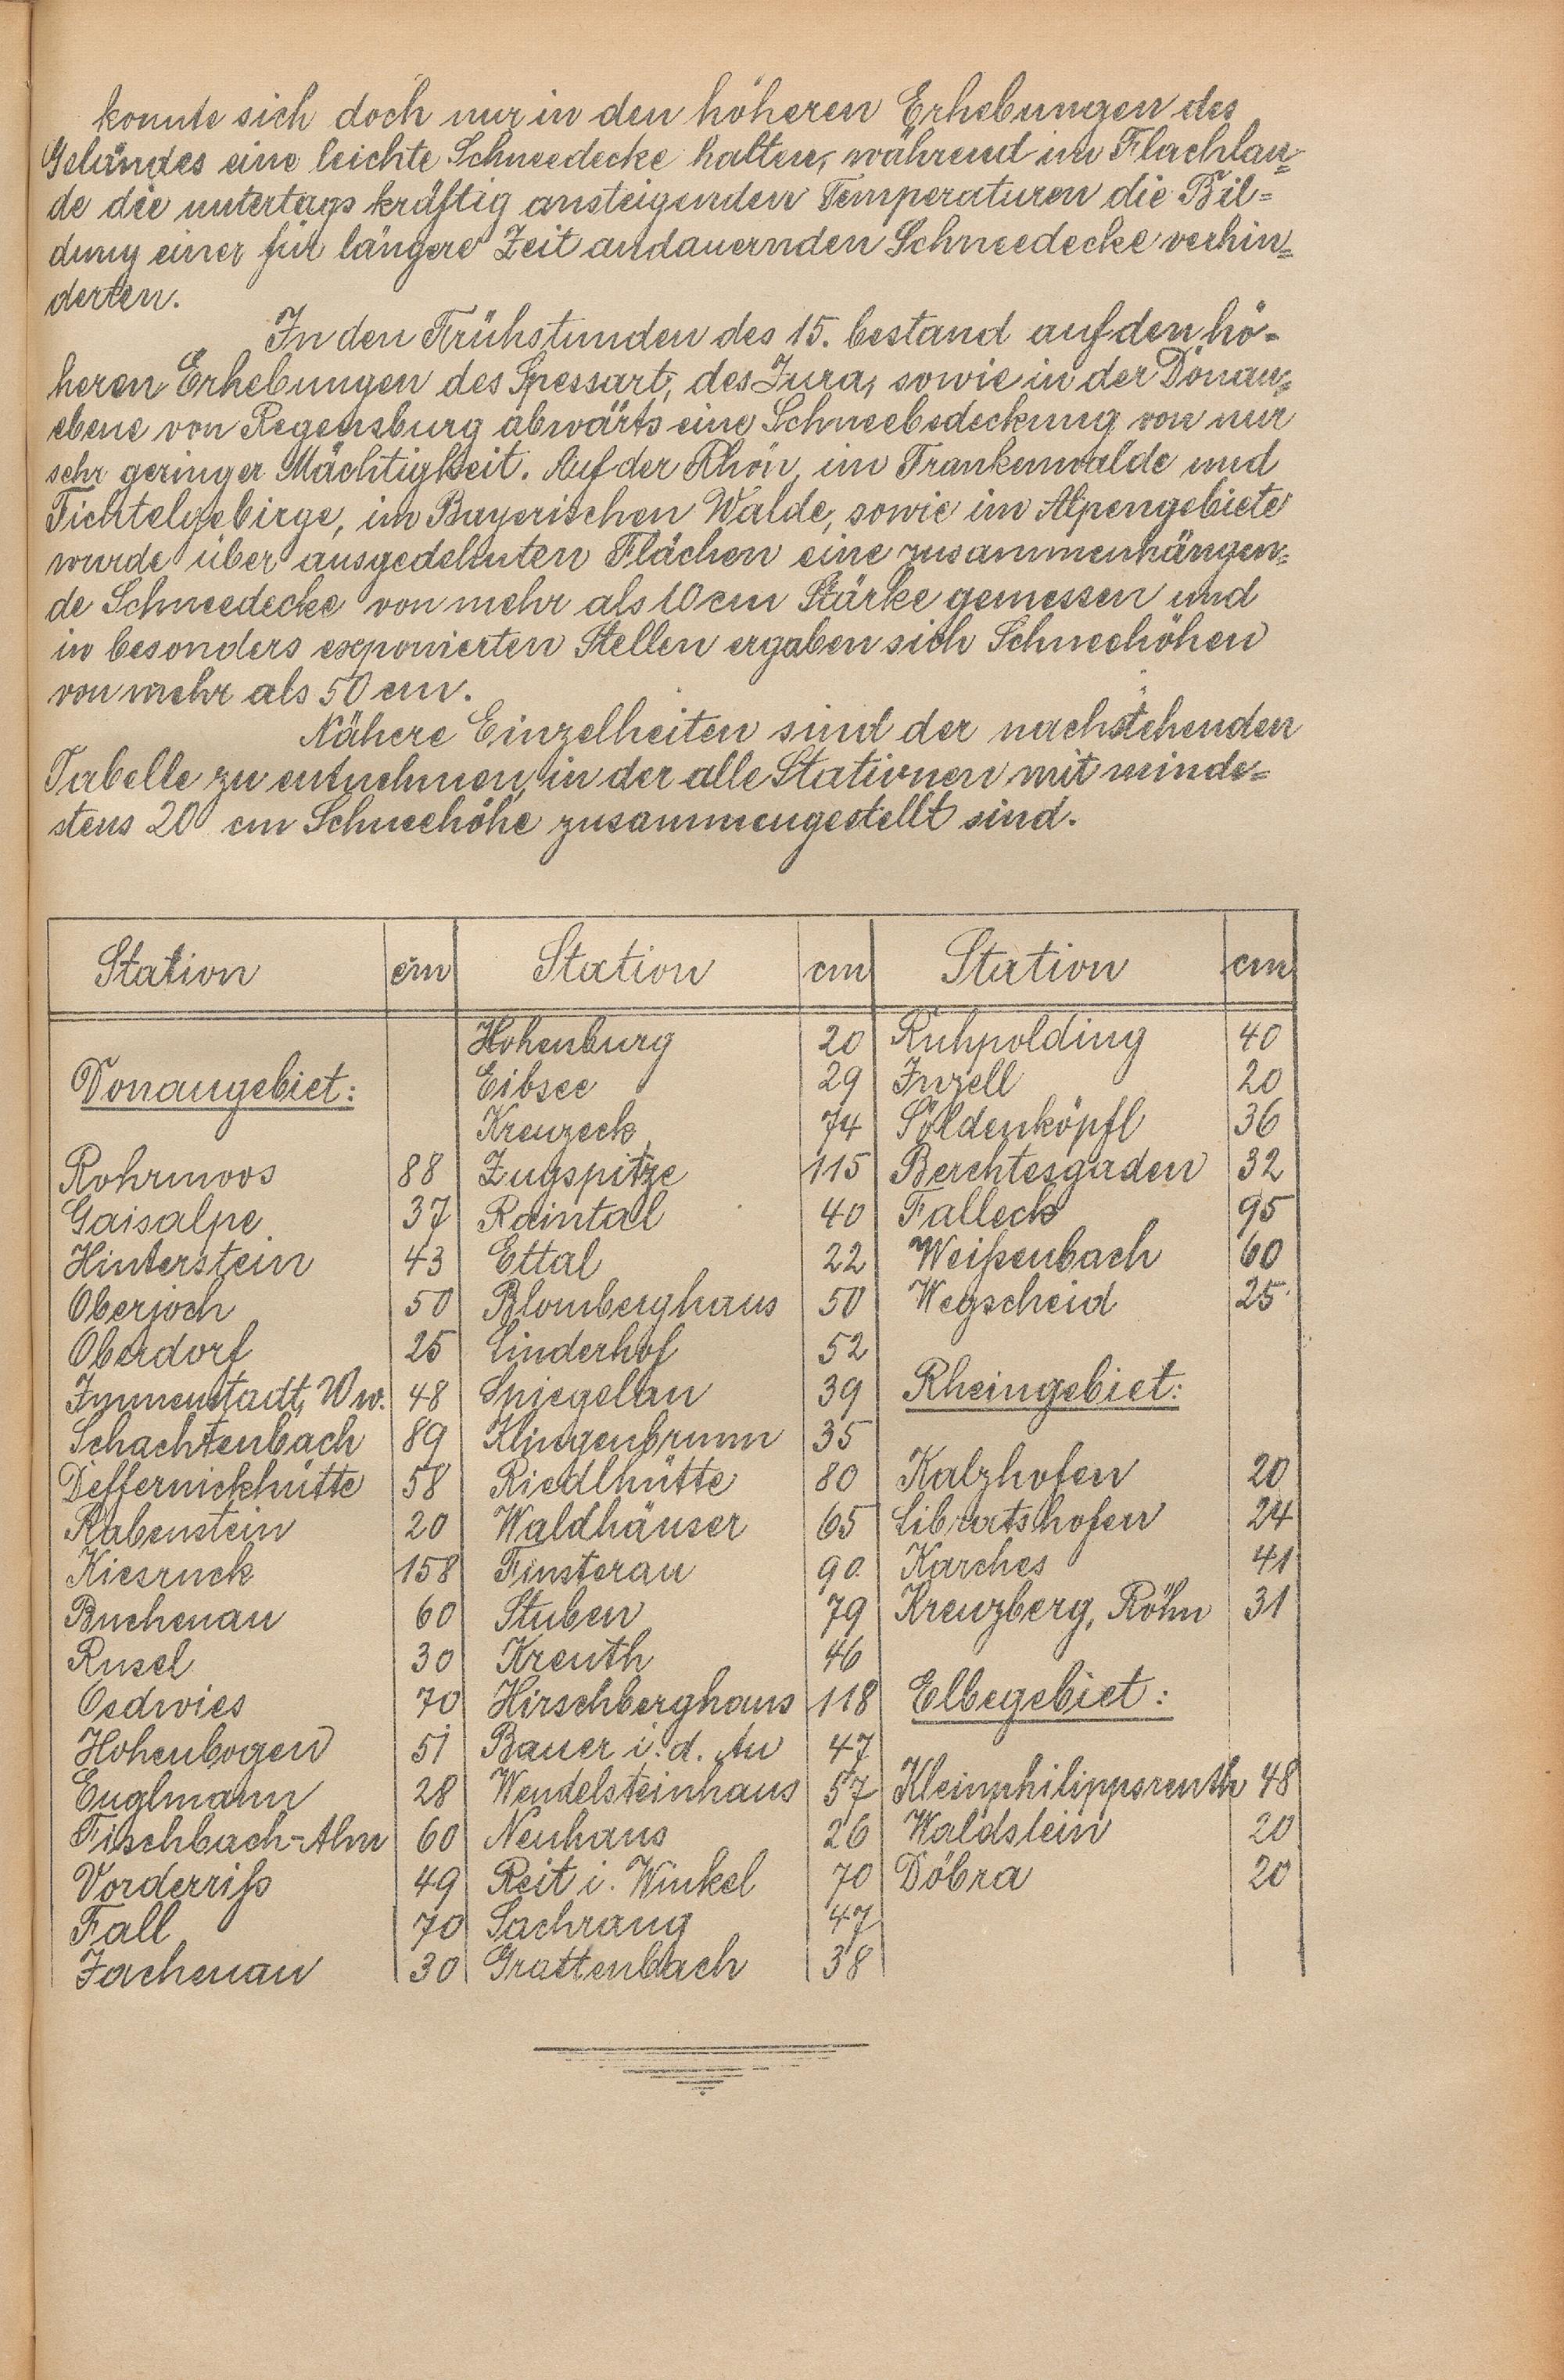 konnte sich doch nur in den höheren Erhebungen des
Geländes eine leichte Schneedecke halten, während im Flachlan=
de die untertags kräftig ansteigenden Temperaturen die Bil=
dung einer für längere Zeit andauernden Schneedecke verhin=
derten.
In den Frühstunden des 15. bestand auf den hö=
heren Erhebungen des Spessart, des Jura, sowie in der Donau=
ebene von Regensburg abwärts eine Schneebedeckung von nur
sehr geringer Mächtigkeit. Auf der Rhön, im Frankenwalde und
Fichtelgebirge, im Bayerischen Walde, sowie im Alpengebiete
wurde über ausgedehnten Flächen eine zusammenhängen=
de Schneedecke von mehr als 10 cm Stärke gemessen und
in besonders exponierten Stellen ergaben sich Schneehöhen
von mehr als 50 cm.
Nähere Einzelheiten sind der nachstehenden
Tabelle zu entnehmen, in der alle Stationen mit minde=
stens 20 cm Schneehöhe zusammengestellt sind.
Station cm Station cm Station cm
Hohenburg 20 Ruhpolding 40
Donaugebiet: Eibsee 29 Inzell 20
Kreuzeck 74 Söldenköpfl 36
Rohrmoos 88 Zugspitze 115 Berchtesgaden 32
Gaisalpe 37 Raintal 40 Falleck 95
Hinterstein 43 Ettal 22 Weißenbach 60
Oberjoch 50 Blomberghaus 50 Wegscheid 25
Oberdorf 25 Linderhof 52
Immenstadt, Ww. 48 Spiegelau 39 Rheingebiet:
Schachtenbach 89 Klingenbrunn 35
Deffernickhütte 58 Riedlhütte 80 Kalzhofen 20
Rabenstein 20 Waldhäuser 65 Libratshofen 24
Kiesruck 158 Finsterau 90 Karches 41
Buchenau 60 Stuben 79 Kreuzberg, Röhn 31
Rusel 30 Kreuth 46
Oedwies 70 Hirschberghaus 118 Elbegebiet:
Hohenbogen 51 Bauer i. d. Au 47
Englmann 28 Wendelsteinhaus 57 Kleinphilippsreuth 48
Fischbach-Alm 60 Neuhaus 26 Waldstein 20
Vorderriß 49 Reit i. Winkel 70 Döbra 20
Fall 70 Sachrang 47
Jachenau 30 Grattenbach 38